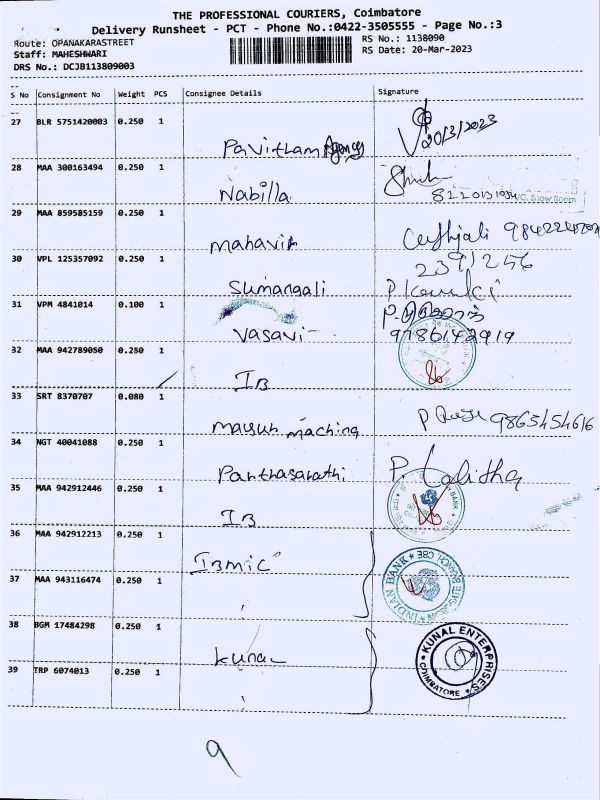 THE PROFESSIONAL COURIERS, Coimbatore
Delivery Runsheet - PCT - Phone No.:0422-3505555 - Page No.:3
Route: OPANAKARASTREET RS No.: 1138090
Staff: MAHESHWARI RS Date: 20-Mar-2023
DRS No.: DCJB113809003
S No Consignment No Weight PCS Consignee Details Signature
27 BLR 5751420003 0.250 1
Pavitham Agency 20/3/2023
28 MAA 300163494 0.250 1
Nabilla
29 MAA 859585159 0.250 1
Mahavir
30 VPL 125357092 0.250 1 2391256
Sumangali
31 VPM 4841014 0.100 1
Vasavi 9786142919
32 MAA 942789050 0.250 1
IB
33 SRT 8370707 0.080 1
9865454616
34 NGT 40041088 0.250 1
Parthasarathi P. Lalitha
35 MAA 942912446 0.250 1
IB
36 MAA 942912213 0.250 1
IBMIC
37 MAA 943116474 0.250 1
INDIAN BANK
38 BGM 17484298 0.250 1
Kunal KUNAL ENTERPRISES COIMBATORE
39 TRP 6074013 0.250 1
9